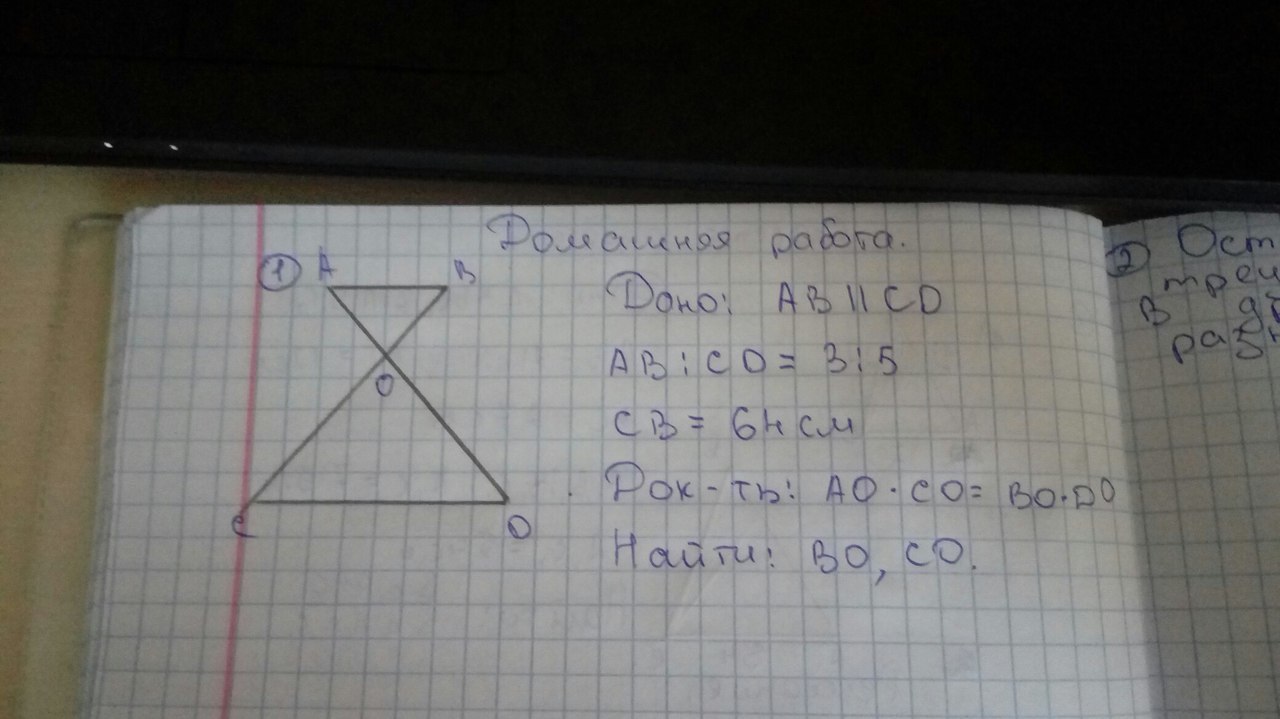 Домашняя работа.
① А В
О
С D
Дано: AB || CD
AB : CD = 3 : 5
CB = 64 см
Док-ть: AO · CO = BO · DO
Найти: BO, CO.
② Ост
треу
в